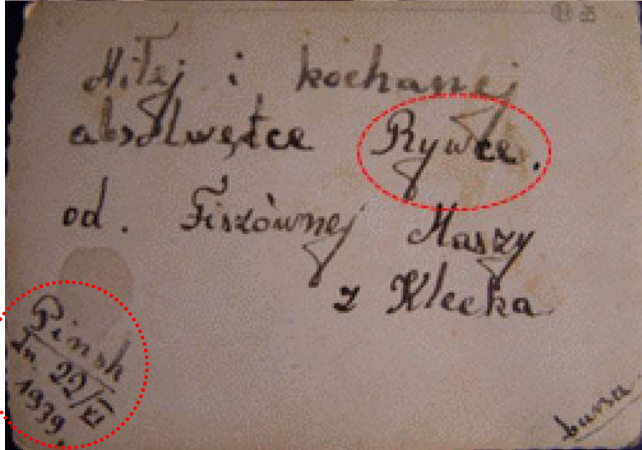 Miłej i kochanej
absolwętce Rywce.
od. Fiszòwnej Maszy
z Klecka
Pinsk
Dn 22/VI
1939.